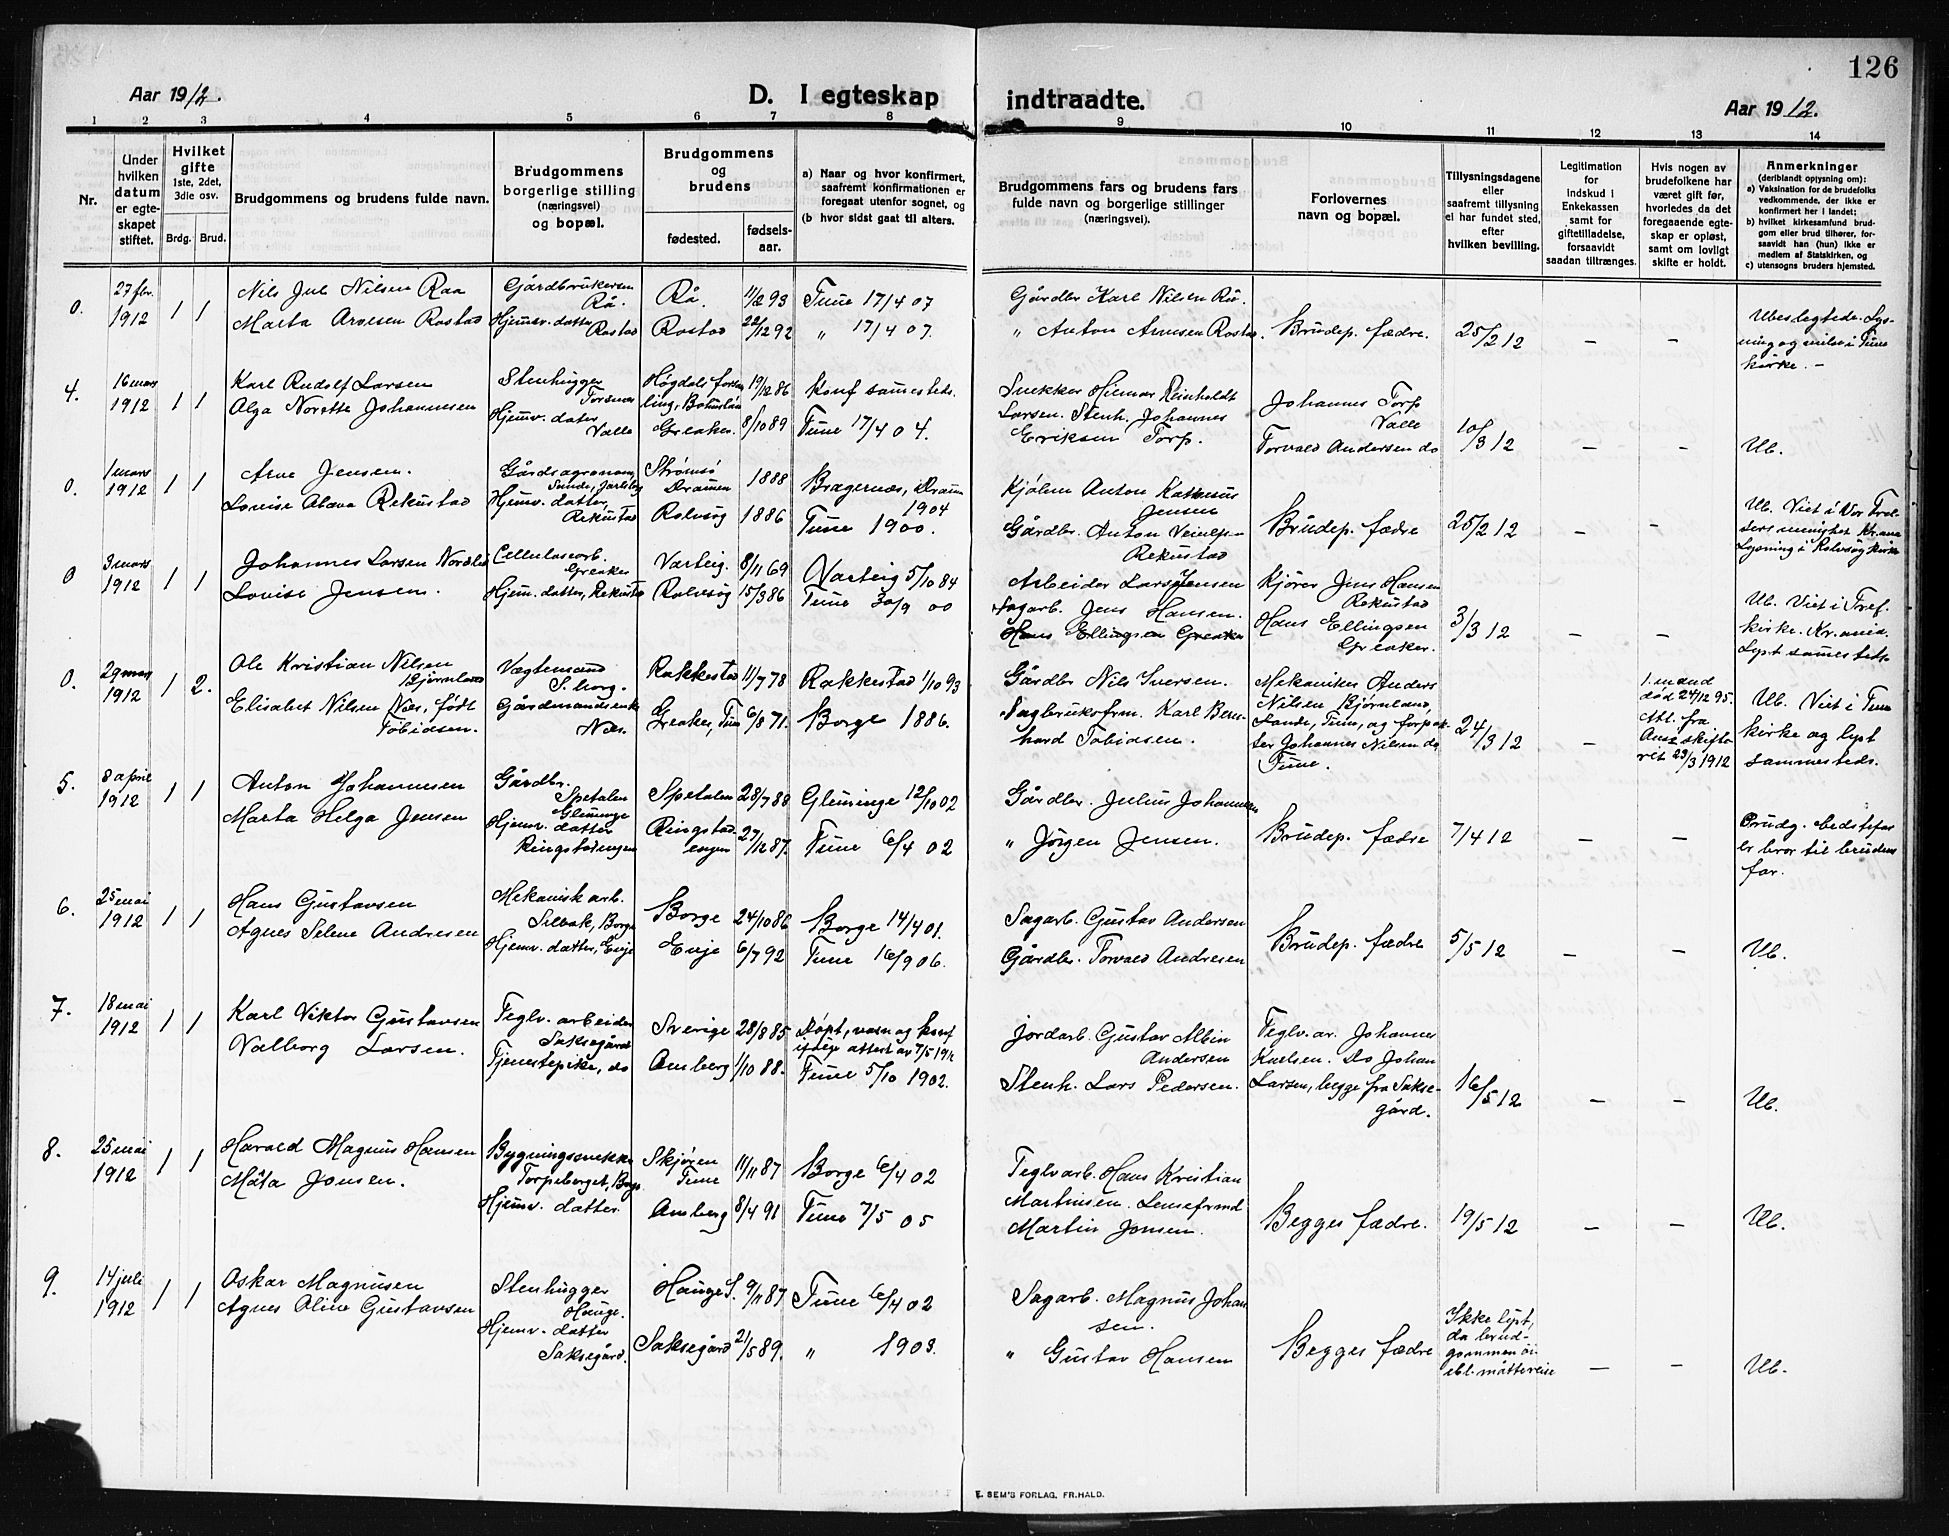 126
Aar 1912.
D. I egteskap indtraadte.
Aar 1912.
1 2 3 4 5 6 7 8 9 10 11 12 13 14
Nr.
Under hvilken datum er egteskapet stiftet.
Hvilket gifte 1ste, 2det, 3die osv.
Brdg. Brud.
Brudgommens og brudens fulde navn.
Brudgommens borgerlige stilling (næringsvei) og bopæl.
Brudgommens og brudens
fødested.
fødsels-aar.
a) Naar og hvor konfirmert, saafremt konfirmationen er foregaat utenfor sognet, og
(b hvor sidst gaat til alters.
Brudgommens fars og brudens fars fulde navn og borgerlige stillinger (næringsvei)
Forlovernes navn og bopæl.
Tillysningsdagene eller saafremt tillysning ei har fundet sted, efter hvilken bevilling.
Legitimation for indskud i Enkekassen samt for giftetilladelse, forsaavidt saadan tiltrænges.
Hvis nogen av brudefolkene har været gift før, hvorledes da det foregaaende egteskap er opløst, samt om lovligt skifte er holdt.
Anmerkninger (deriblandt opjysning om):
a) Vaksination for de brudefolks vedkommende, der ikke er konfirmert her i landet;
b) hvilket kirkesamfund brudgom eller brud tilhører, forsaavidt han (hun) ikke er medlem af Statskirken, og
c) utensogns bruders hjemsted.
0. 27 fbr. 1912 1 1
Nils Jul Nilsen Raa
Marta Arvesen Rostad
Gårdbrukersøn
Rå.
Hjemv. datter
Rostad
Rå. 11/2 93
Rostad 22/12 92
Tune 17/4 07
" 17/4 07.
Gårdbr Karl Nilsen Rå.
" Anton Arvesen Rostad.
Brudep. fædre.
25/2 12
– –
Ubeslegtede. Lys-
ning og vilse i Tune
kirke. –
4. 16 mars 1912 1 1
Karl Rudolf Larsen
Olga Norette Johannesen
Stenhugger
Torsnes
Hjemv. datter
Valle
19/12 86
Greaker. 8/10 89
Konf sammesteds.
Tune 17/4 04.
Snekker Hjemar Reinholdt
Larsen. Stenh. Johannes
Eriksen Torp.
Johannes Torp
Valle
Torvald Andersen do
10/3 12
– –
Ub.
0. 1 mars 1912 1 1
Arne Jensen.
Lovise Olava Rekustad
Gårdsagronom,
Sande, Jarlsbg
Hjemv. datter,
Rekustad
Strømsø
Dramen 1888
Rolvsøy 1886
Bragernæs, Dramn
1904
Tune 1900.
Kjølm Anton Kathinus
Jensen
Gårdbr. Anton
Rekustad
Brudep. fædre
25/2 12
– –
Ub. Viet i Vor Frel-
sers menighet Kr.ania
Lysning i Rolvsøy kirke
0 3 mars 1912 1 1
Johannes Larsen Nordli
Lovise Jensen.
Cellulosearb.
Greaker
Hjem. datter, Rekustad
Varteig. 8/11 69
Rolvsøy 15/3 86
Varteig 5/10 84
Tune 30/9 00
Arbeider Lars Jensen
Sagarb. Jens Hansen.
Hans Ellingsen Greaker
Kjører Jens Hansen
Rekustad
Hans Ellingsen
Greaker.
3/3 12
– –
Ub. Viet i Tref.
kirke. Kr.ania.
Lyst sammesteds
0. 29 mars 1912 1 2.
Ole Kristian Nilsen
Bjørnland
Elisabet Nilsen Næs, født
Tobiasen.
Vægtemand
S.borg.
Gårdmandsenke
Næs.
Rakkestad 11/7 78
Greaker, Tune 6/8 71.
Rakkestad 1/10 93
Borge 1886.
Gårdbr Nils Iversen.
Sagbruksfrm. Karl Bern-
hard Tobiasen.
Mekaniker Anders
Nilsen Bjørnland,
Sande, Tune, og forpak-
ter Johannes Nilsen do
Tune.
24/3 12
–
1. mand
død 24/12 95.
Att. fra
skifte
ret 23/3 1912
Ub. Viet i Tune
kirke og lyst
sammesteds.
5. 8 april 1912 1 1
Anton Johannesen
Marta Helga Jensen
Gårdbr.
Spetalen
Glemmige
Hjemv. datter
Ringstadengen
Spetalen 28/7 88
Ringstad-
engen 27/12 87.
Glemminge 12/10 02
Tune 6/4 02
Gårdbr. Julius Johannesen
" Jørgen Jensen.
Brudep. fædre
7/4 12
– –
Brudg. bedstefar
er bror til brudens
far.
6. 25 mai 1912 1 1
Hans Gustavsen
Agnes Selene Andresen
Mekanisk arb.
Selbak, Borge
Hjemv. datter, Evje
Borge 24/10 86
Evje 6/7 92
Borge 14/4 01.
Tune 16/9 06.
Sagarb. Gustav Andersen
Gårdbr. Torvald Andresen
Brudep. fædre
5/5 12
– –
Ub.
7. 18 mai 1912 1 1
Karl Viktor Gustavsen
Valborg Larsen.
Teglv. arbeider
Saksegård
Tjenestepike, do
Sverige 28/8 85
Amberg 1/10 88.
Døpt, vacn og konf
ifølge attest av 7/5 1912
Tune 5/10 1902.
Jordarb. Gustav Albin
Andersen
Stenh. Lars Pedersen.
Teglv. ar. Johannes
Karlsen. Do Johan
Larsen, begge fra Sakse-
gård.
16/5 12
– –
Ub.
8. 25 mai 1912 1 1
Harald Magnus Hansen
Mäta Jonsen.
Bygningssnekker
Torpeberget, Borge
Hjemv. datter
Skjøren
Tune 11/11 87
Amberg 8/4 91
Borge 6/4 02
Tune 7/5 05
Teglvarb. Hans Kristian
Martinsen. Lensefrmd
Martin Jonsen.
Begges fædre.
19/5 12
– –
Ub.
9. 14 juli 1912 1 1
Oskar Magnusen
Agnes Oline Gustavsen
Stenhugger
Hauge.
Hjemv. datter
Saksegård.
Hauge S. 9/11 87
Saksegård 21/5 89.
Tune 6/4 02
" 1903.
Sagarb. Magnus Johan
sen.
" Gustav Hansen
Begges fædre
Ikke lyst,
da brud-
gommen øi-
ebl. måtte reise
– –
Ub.
E. SEM'S FORLAG, FR.HALD.